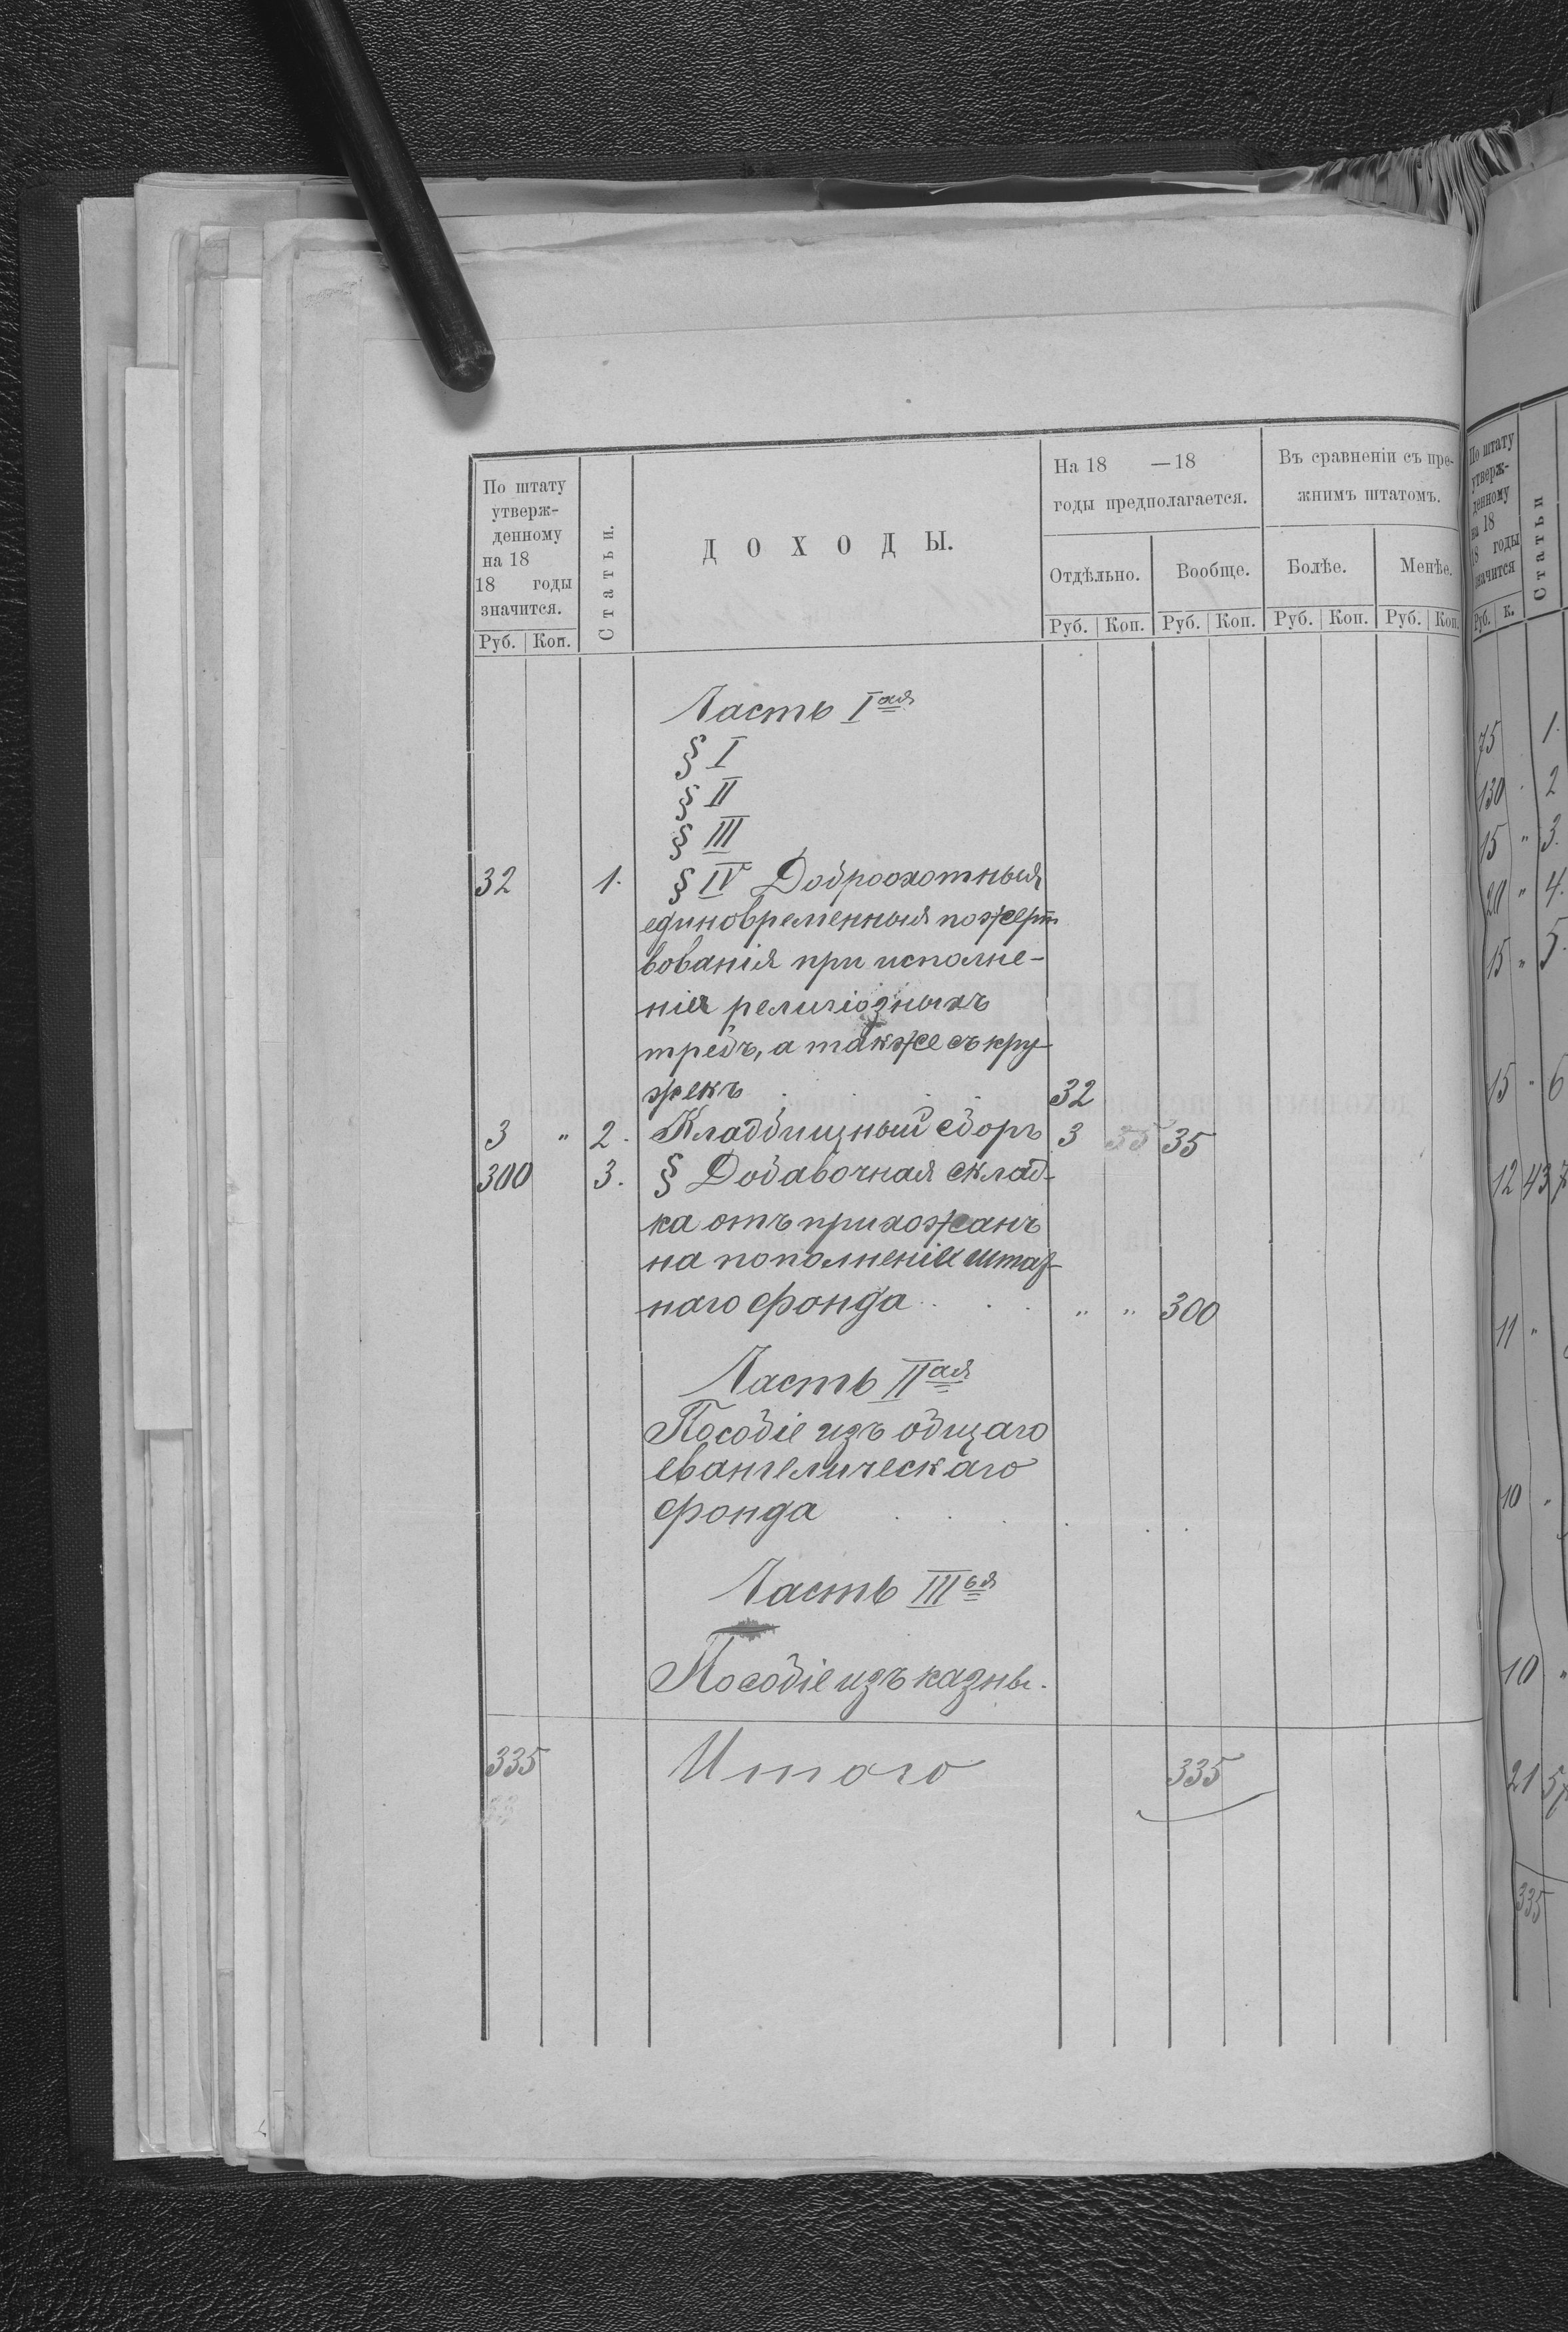 По штату утверж-денному на 18 18 годы значится.
Статьи.
ДОХОДЫ.
На 18 —18 годы предполагается.
Въ сравненіи съ пре-жнимъ штатомъ.
Отдѣльно. Вообще. Болѣе. Менѣе.
Руб. Коп. Руб. Коп. Руб. Коп. Руб. Коп. Руб. Коп.
Часть Iая
§ I
§ II
§ III
32 1. § IV Доброохотныя
единовременныя пожерт
вованія при исполне-
нія религіозныхъ
требъ, а также съ кру-
жекъ 32
3 " 2. Кладбищный сборъ 3 35
300 3. § Добавочная склад-
ка отъ прихожанъ
на пополненіе штат-
наго фонда . . . " " 300
Часть IIая
Пособіе изъ общаго
евангелическаго
фонда . . . . . .
Часть IIIья
Пособіе изъ казны.
335 Итого 335
По штату утверж-денному на 18 18 годы значится
Статьи
Руб. к.
75 1.
130 2
15 " 3.
20 " 4.
15 " 5.
15 " 6
12 43 7
11 "
10 "
10 "
21 57
335